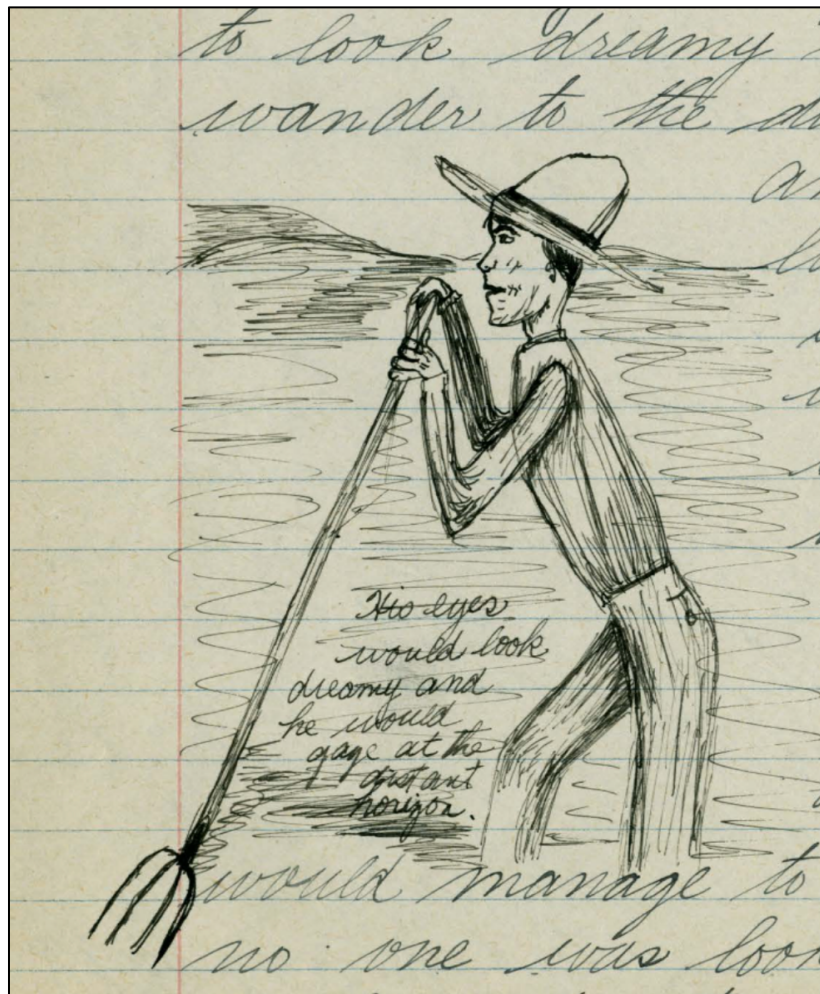 to look dreamy
wander to the
His eyes
would look
dreamy and
he would
gaze at the
distant
horizon.
would manage to
no one was